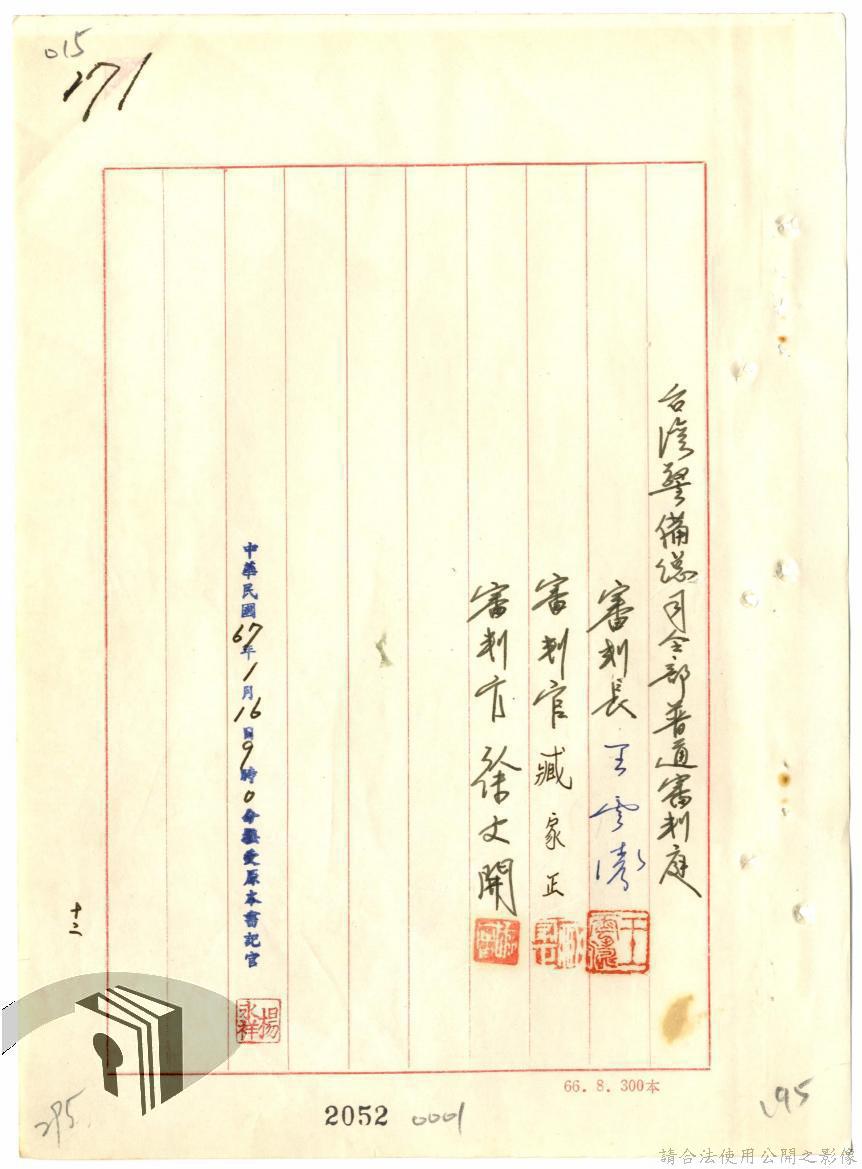 015
171
台湾警備總司令部普通審判庭
審判長 王雲濤
審判官 臧家正
審判官 徐文開
中華民國67年1月16日9時0分
原本書記官
楊永祥
十二
66. 8. 300本
2052 0001
295
195
請合法使用公開之影像